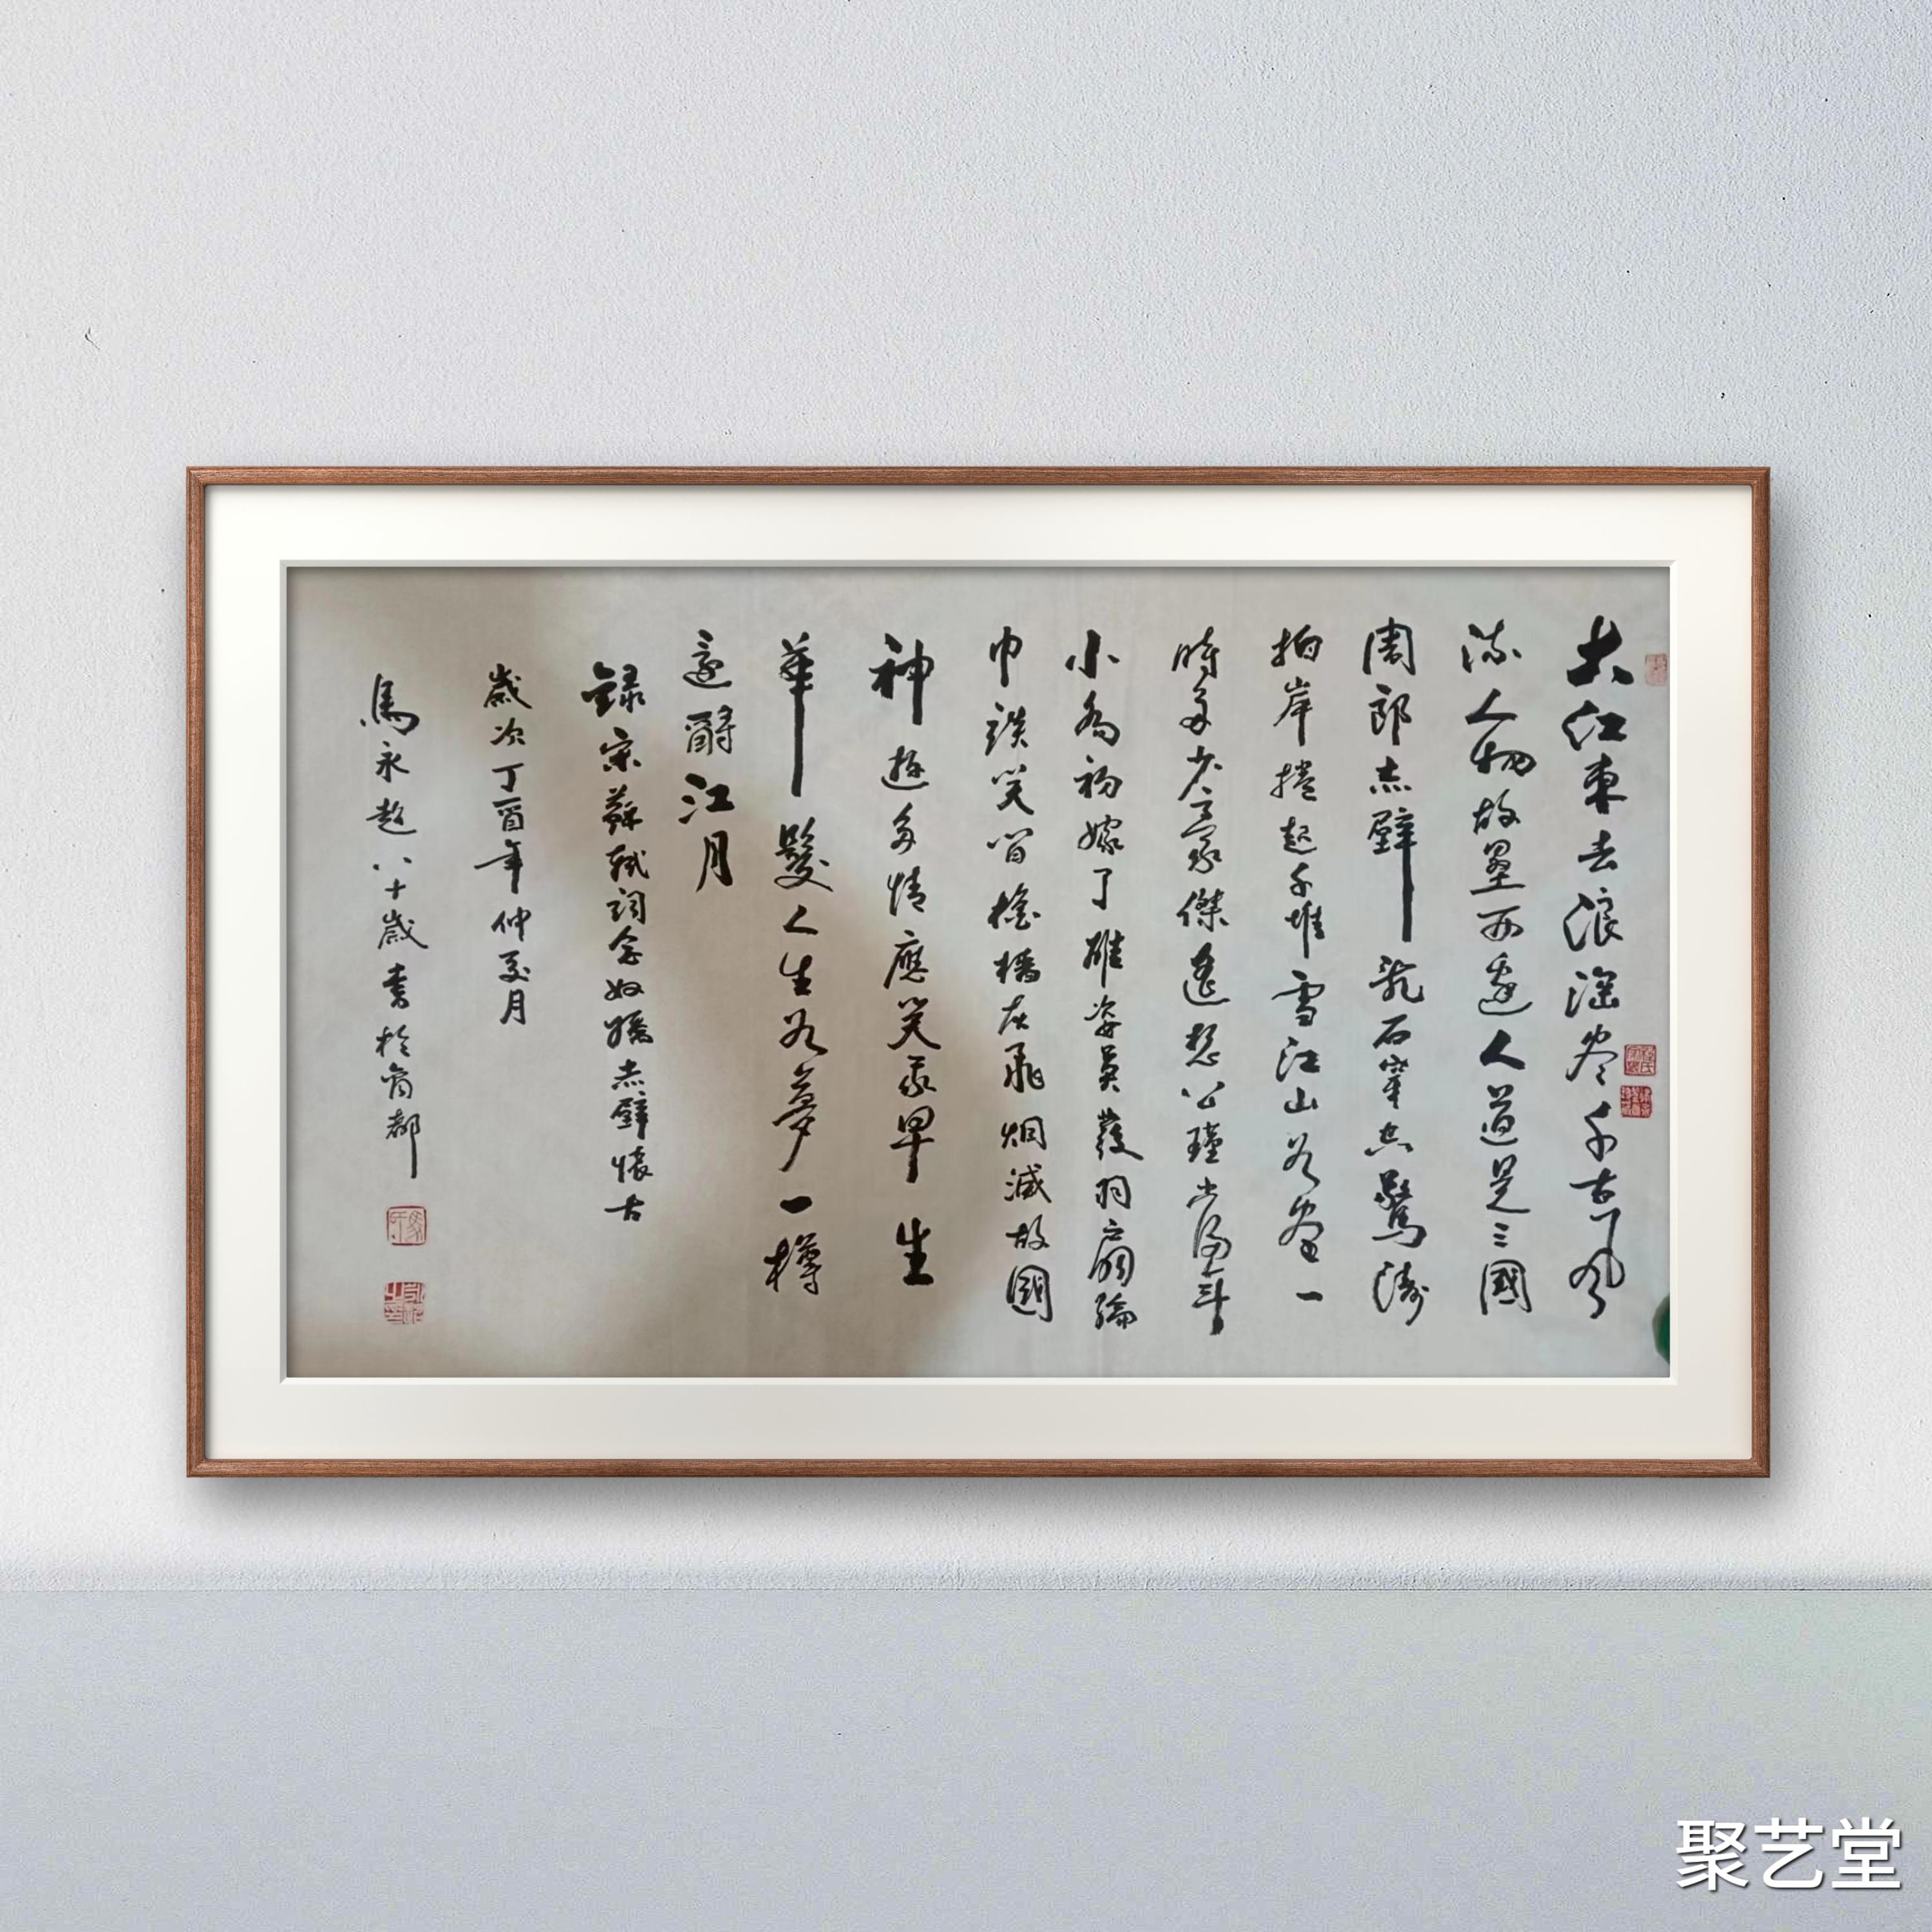 大江東去浪淘尽千古風
流人物故壘西邊人道是三國
周郎赤壁亂石穿空驚濤
拍岸捲起千堆雪江山如畫一
時多少豪傑遙想公瑾當年
小喬初嫁了雄姿英發羽扇綸
巾談笑間檣櫓灰飛烟滅故國
神遊多情應笑我早生
華髮人生如夢一樽
還酹江月
録宋蘇軾詞念奴嬌赤壁懷古
歲次丁酉年仲夏月
馬永超八十歲書於商都
聚艺堂